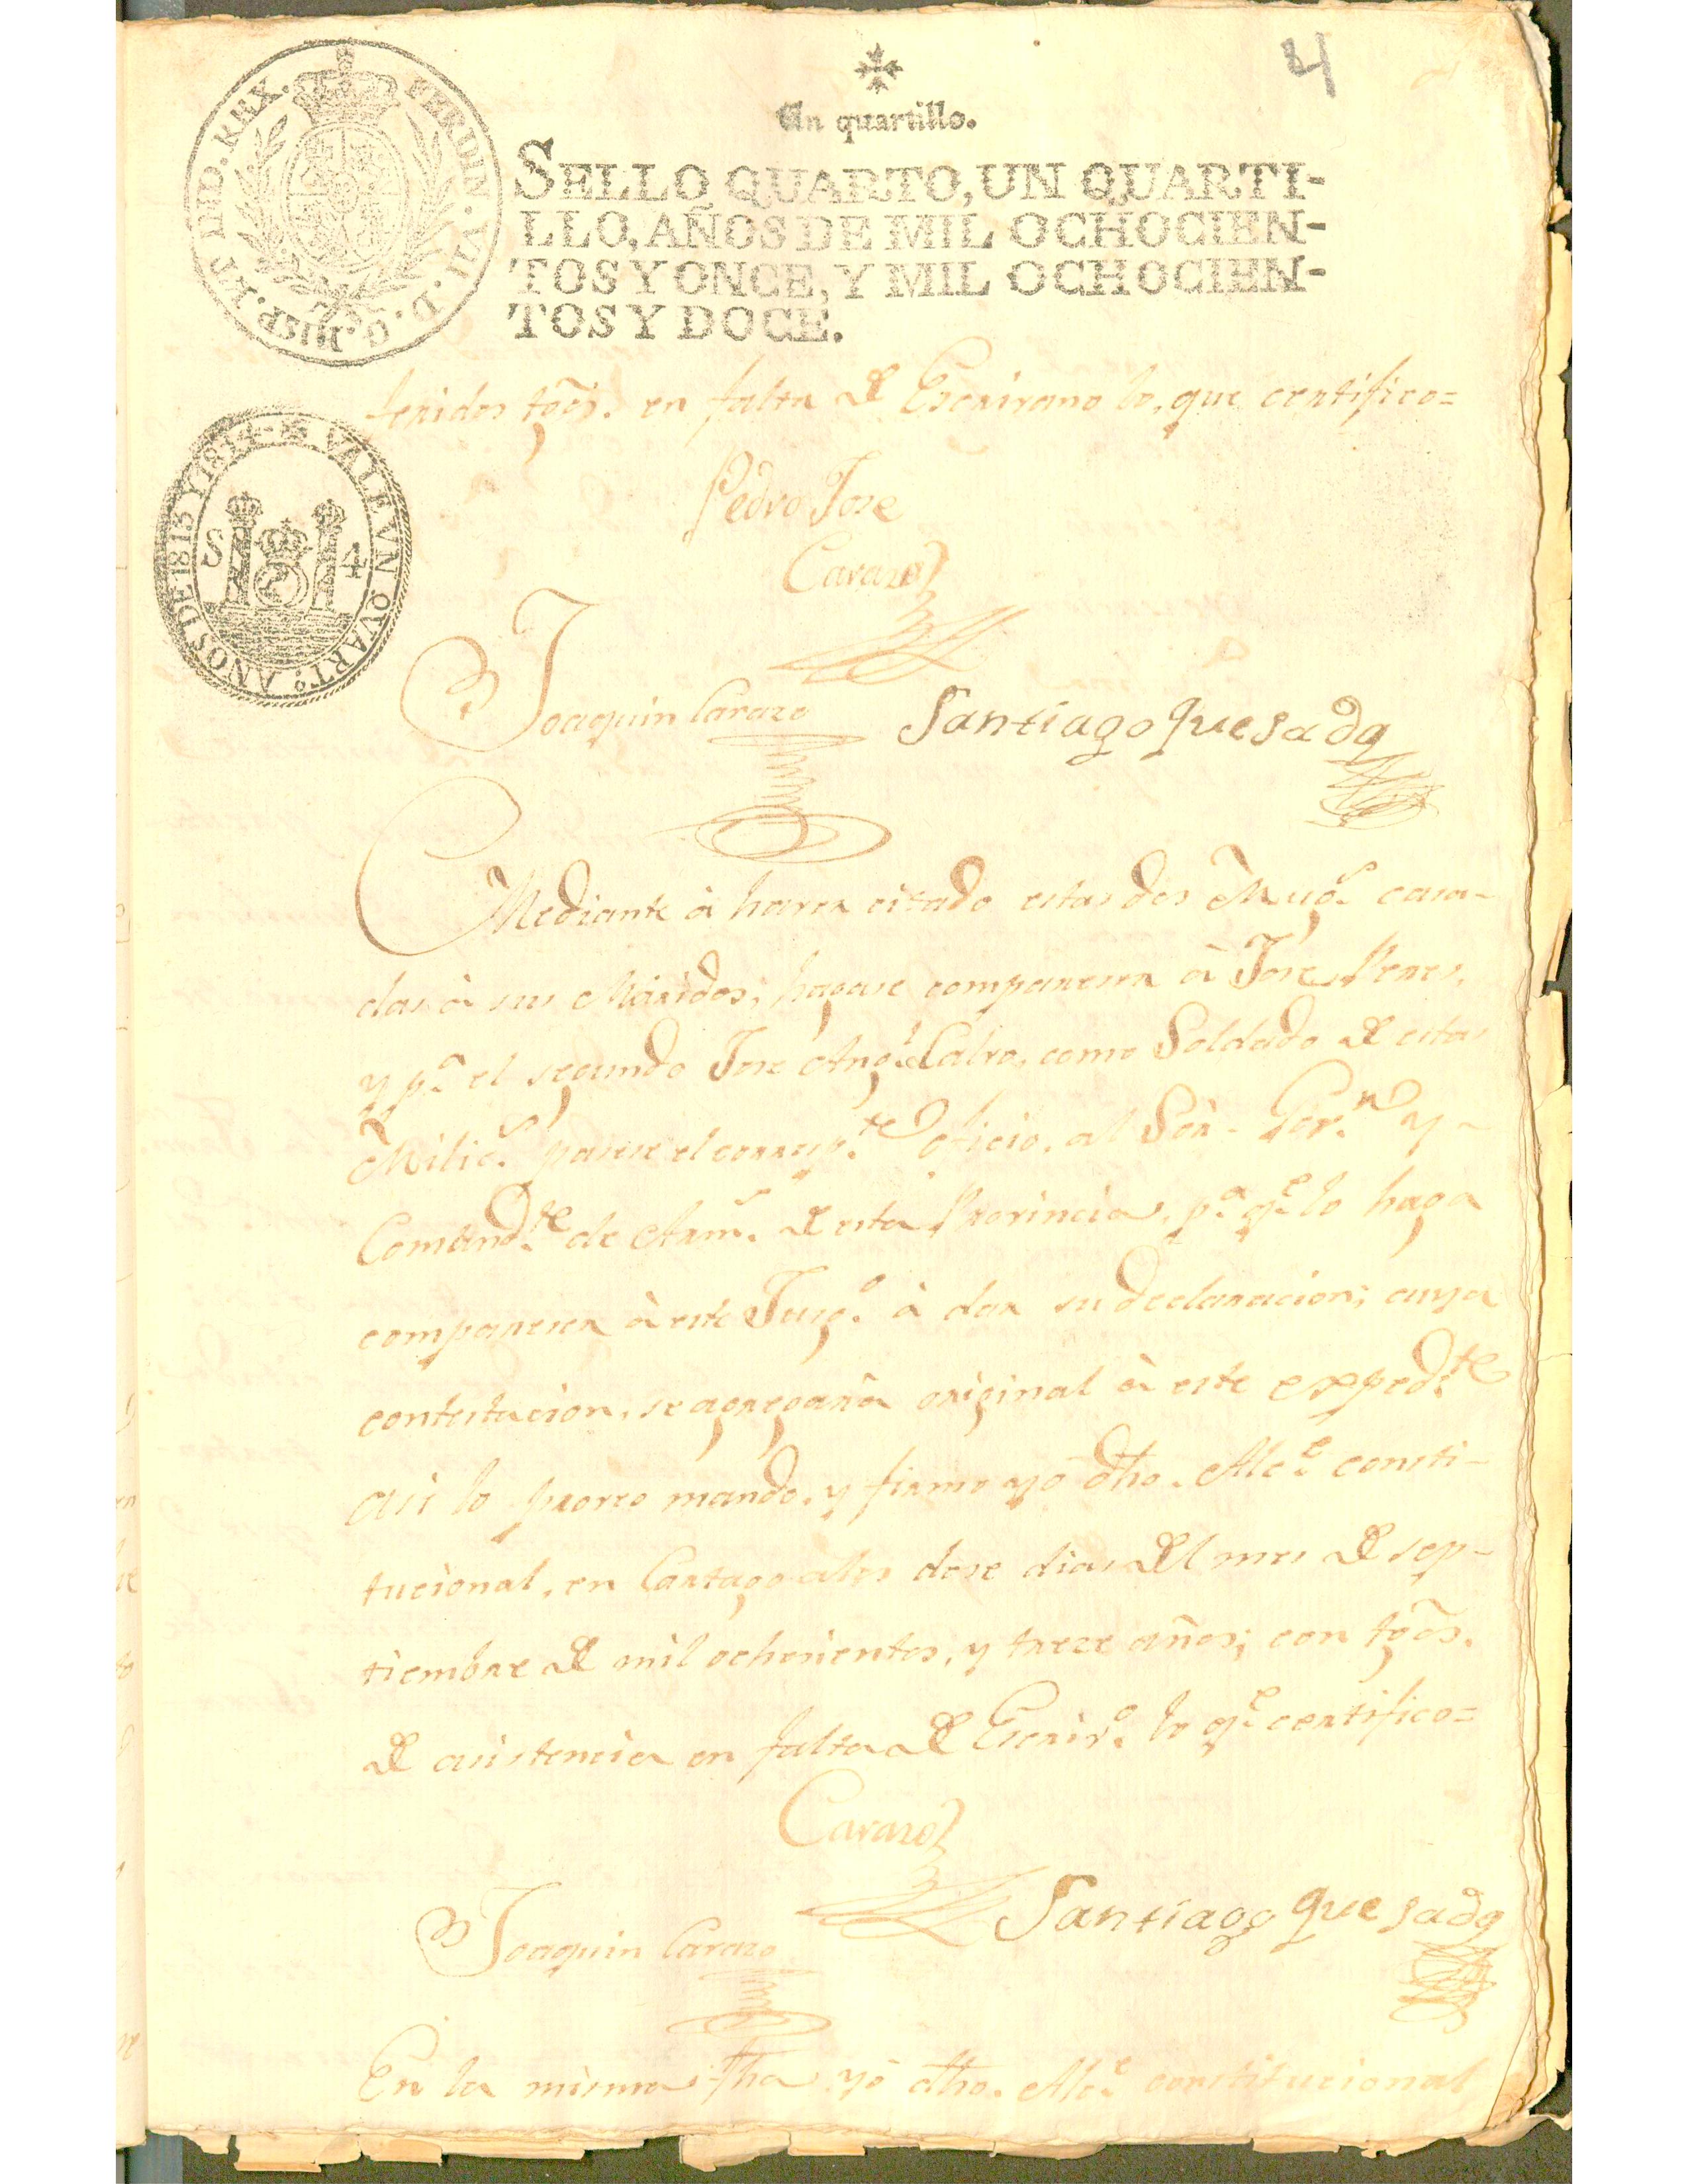 4
Un quartillo.
SELLO QUARTO, UN QUARTI-
LLO, AÑOS DE MIL OCHOCIEN-
TOS Y ONCE, Y MIL OCHOCIEN-
TOS Y DOCE.
FERDIN. VII. D. G. HISP. ET IND. REX.
VALE VN QVART.º AÑOS DE 1813 Y 1814
S 4
feridos tgõs. en falta de Escrivano lo, que certifico=
Pedro Jose
Carazo
Joaquin Carazo Santiago Quesada
Mediante à haver citado estas dos Mug.s casa-
das à sus Maridos; hagase comparecer à Jose Peres,
y p.a el segundo Jose Ang.l Calvo, como Soldado de estas
Milic.s pasese el corresp.te oficio, al Señ.r Gov.r y-
Comand.te de Arm.s de esta Provincia, p.a q.e lo haga
comparecer à este Juzg.o à dar su declaracion; cuya
contestacion, se agregarà original à este exped.te
asi lo proveo mando, y firmo yo dho. Alc.e consti-
tucional, en Cartago alos dose dias del mes de sep-
tiembre de mil ochosientos, y trece años; con tgõs.
de asistencia en falta de Escriv.o lo q.e certifico=
Carazo
Joaquin Carazo Santiago Quesada
En la misma fha yo dho. Alc.e constitucional